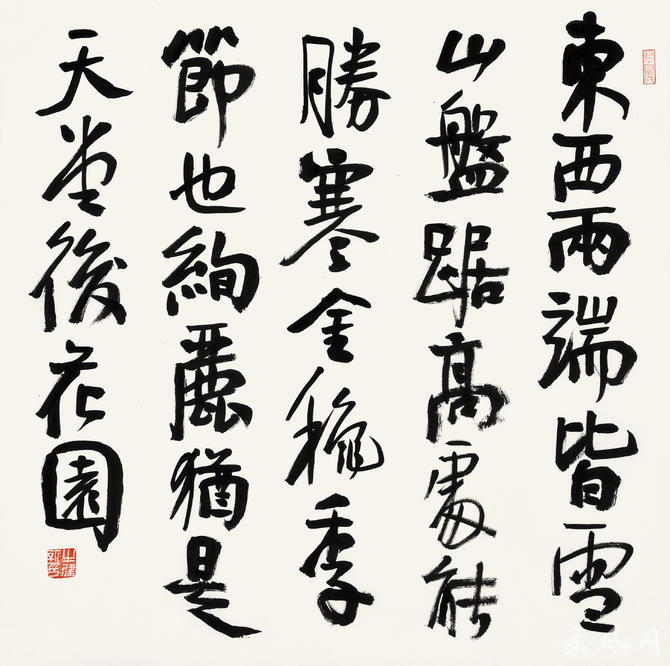 東西兩端皆雪
山盤踞高處能
勝寒金穐季
節也絢麗猶是
天堂後花園